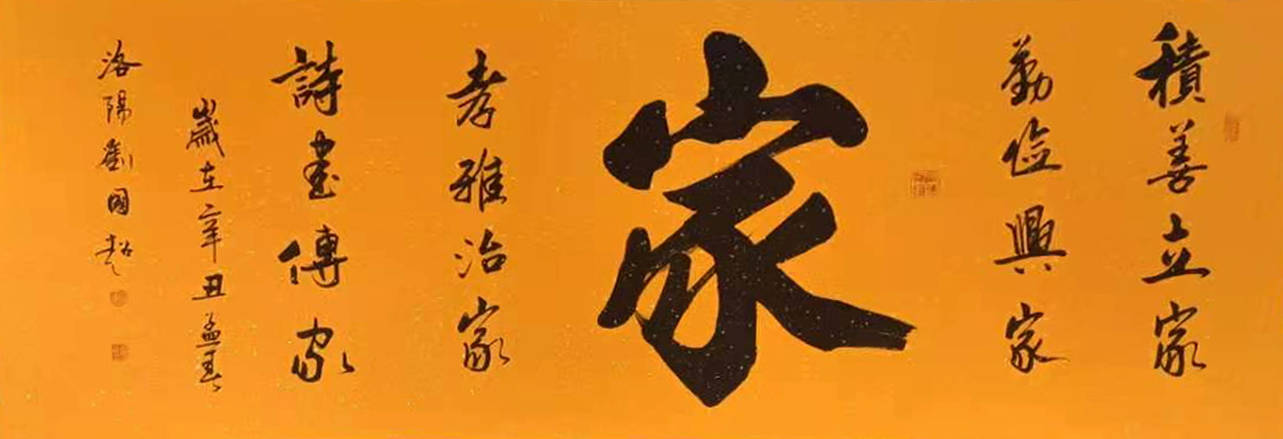 積善立家
勤儉興家
家
孝雅治家
詩書傳家
歲在辛丑孟春
洛陽劉國超